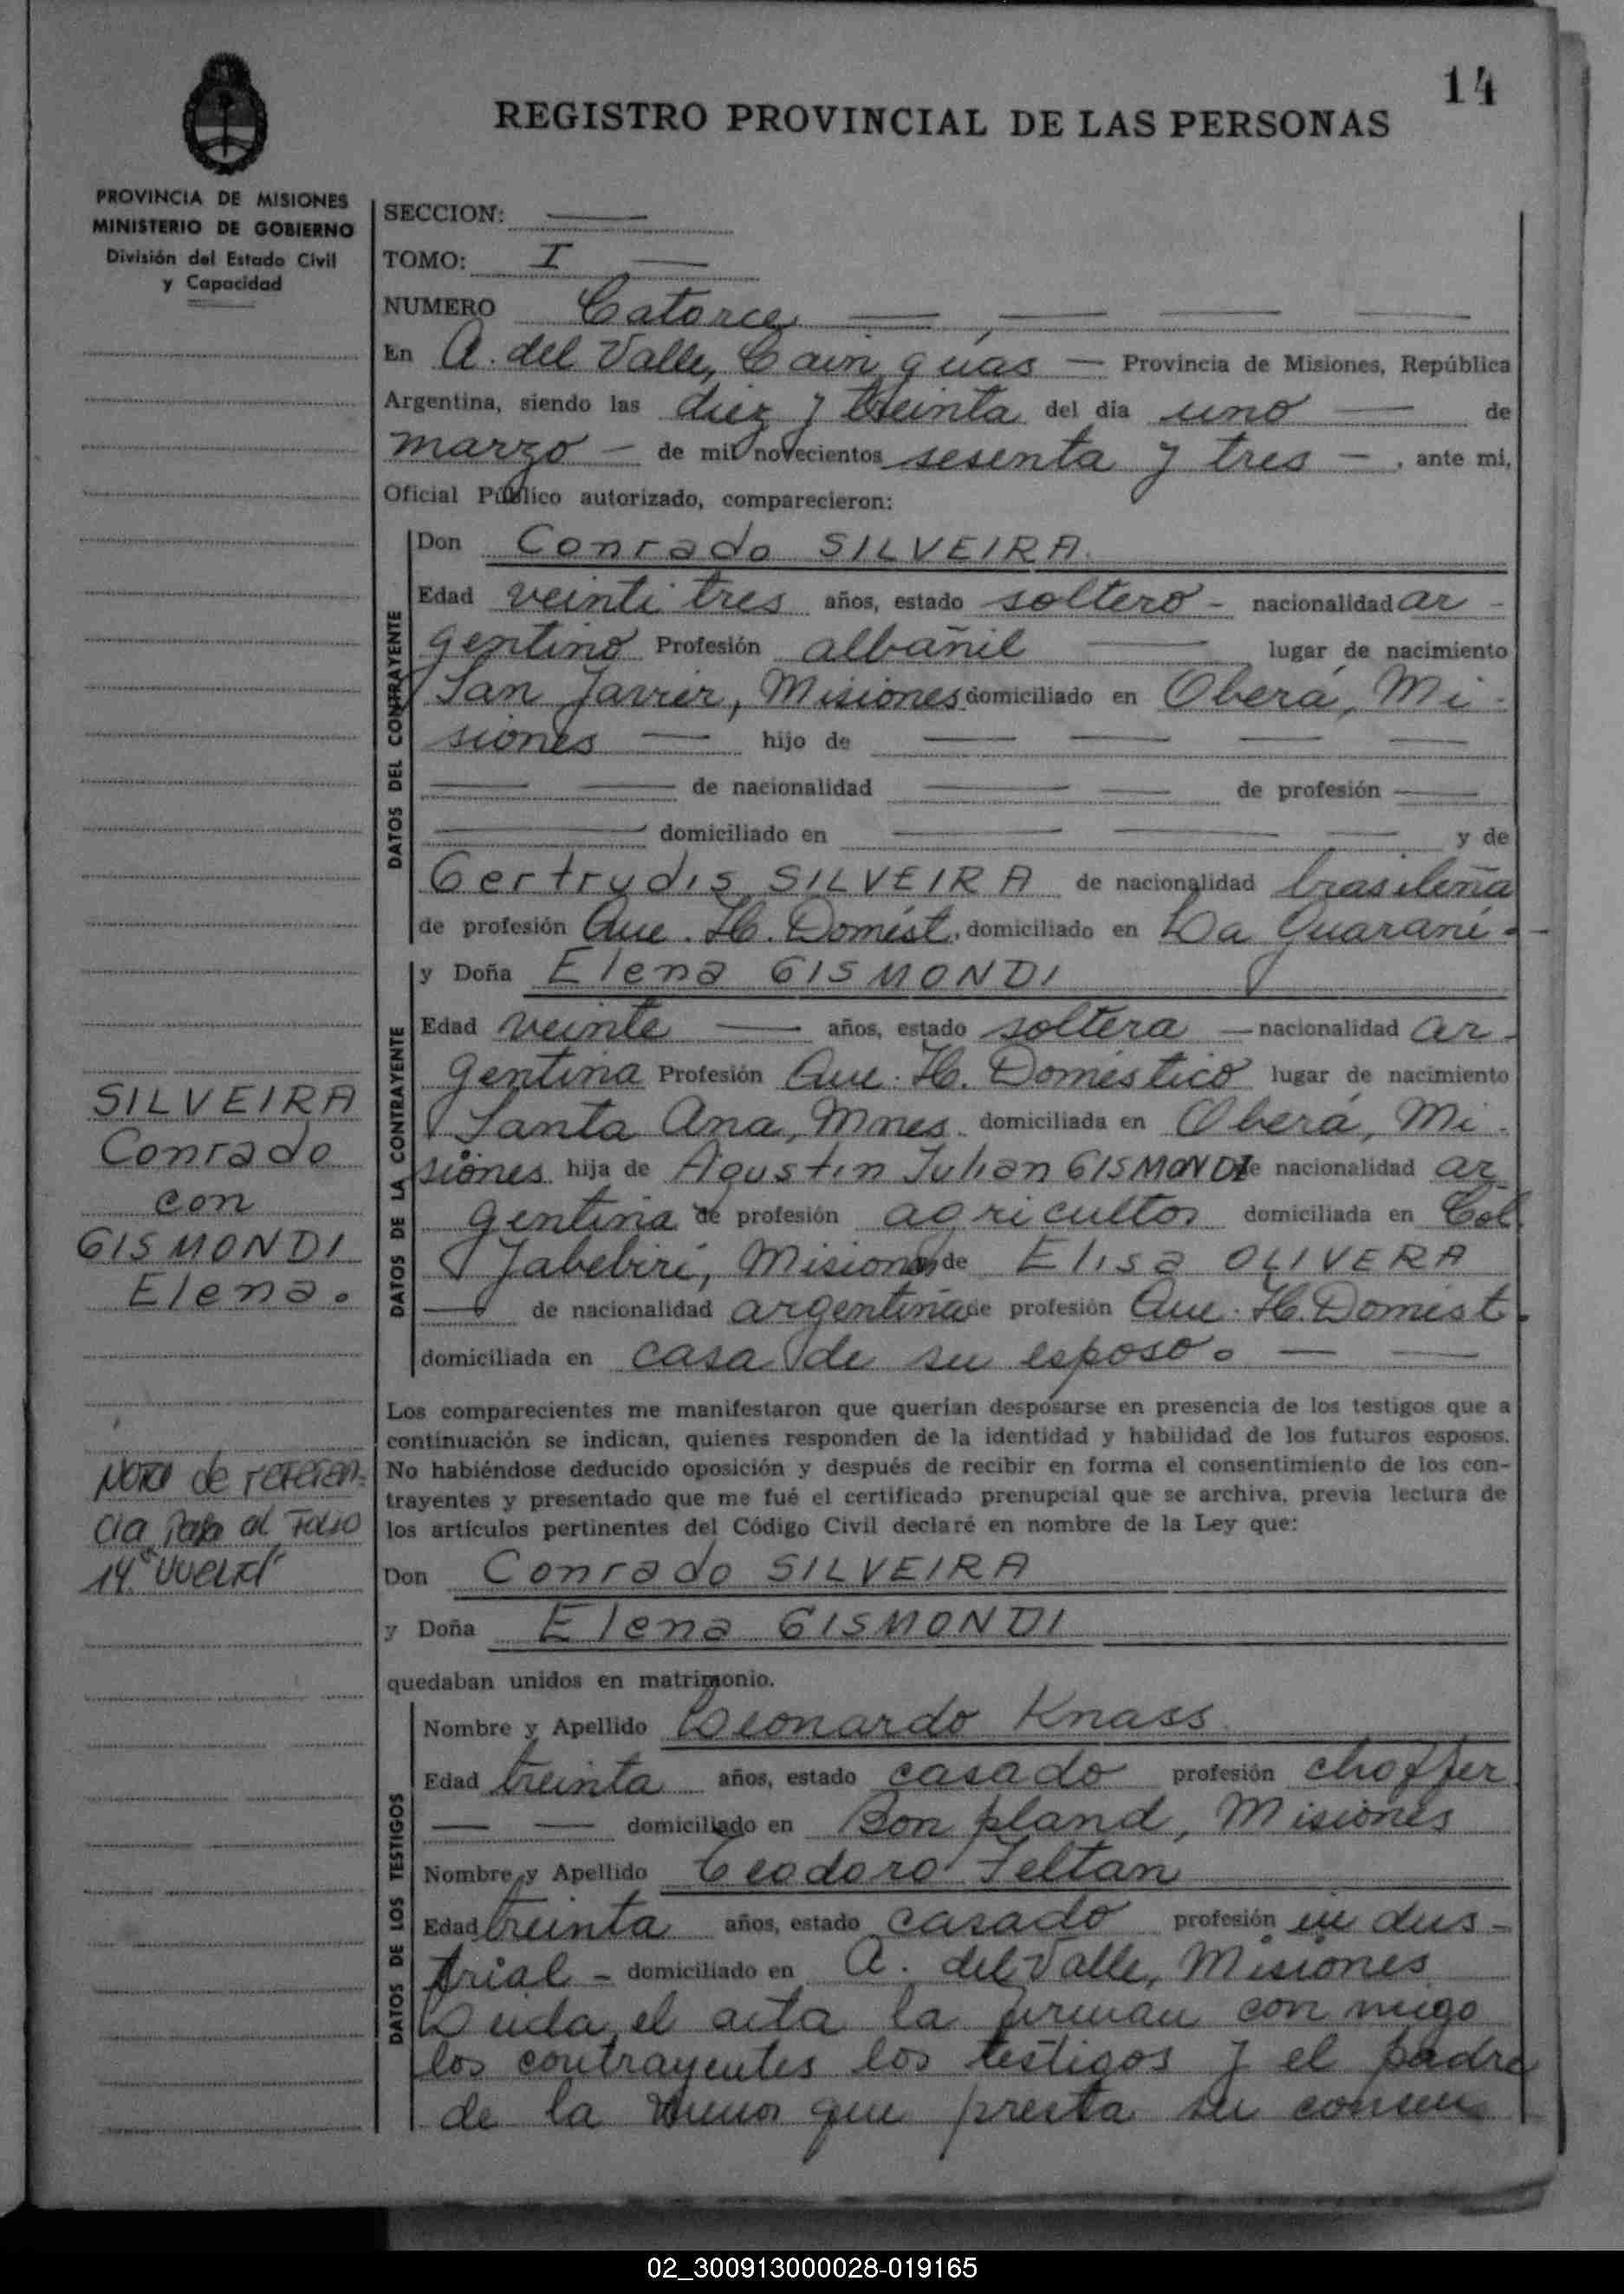 14
REGISTRO PROVINCIAL DE LAS PERSONAS
PROVINCIA DE MISIONES
MINISTERIO DE GOBIERNO
División del Estado Civil
y Capacidad
SECCION:
TOMO: I
NUMERO Catorce
En A. del Valle, Cainguás — Provincia de Misiones, República
Argentina, siendo las diez y treinta del día uno — de
marzo — de mil novecientos sesenta y tres — , ante mi,
Oficial Público autorizado, comparecieron:
DATOS DEL CONTRAYENTE
Don Conrado SILVEIRA
Edad veinti tres años, estado soltero - nacionalidad ar -
gentino Profesión albañil — lugar de nacimiento
San Javier, Misiones domiciliado en Oberá, Mi -
siones — hijo de
de nacionalidad de profesión
domiciliado en y de
Gertrudis SILVEIRA de nacionalidad brasileña
de profesión Que. H. Domést. domiciliado en La Guaraní -
DATOS DE LA CONTRAYENTE
y Doña Elena GISMONDI
Edad veinte — años, estado soltera — nacionalidad ar -
gentina Profesión Que. H. Doméstico lugar de nacimiento
Santa Ana, Mnes. domiciliada en Oberá, Mi -
siones hija de Agustin Julian GISMONDI de nacionalidad ar
gentina de profesión agricultor domiciliada en Col.
Jabebirí, Misiones de Elisa OLIVERA
— de nacionalidad argentina de profesión Que. H. Domést.
domiciliada en casa de su esposo. — —
Los comparecientes me manifestaron que querían desposarse en presencia de los testigos que a
continuación se indican, quienes responden de la identidad y habilidad de los futuros esposos.
No habiéndose deducido oposición y después de recibir en forma el consentimiento de los con-
trayentes y presentado que me fué el certificado prenupcial que se archiva, previa lectura de
los artículos pertinentes del Código Civil declaré en nombre de la Ley que:
Don Conrado SILVEIRA
y Doña Elena GISMONDI
quedaban unidos en matrimonio.
DATOS DE LOS TESTIGOS
Nombre y Apellido Leonardo Knass
Edad treinta años, estado casado profesión choffer
— — domiciliado en Bonpland, Misiones
Nombre y Apellido Teodoro Feltan
Edad treinta años, estado casado profesión indus -
trial - domiciliado en A. del Valle, Misiones
Leida el acta la firman con migo
los contrayentes los testigos y el padre
de la menor que presta su consen
SILVEIRA
Conrado
con
GISMONDI
Elena.
Nota de referen-
cia Pasa al Folio
14 vuelta
02_300913000028-019165